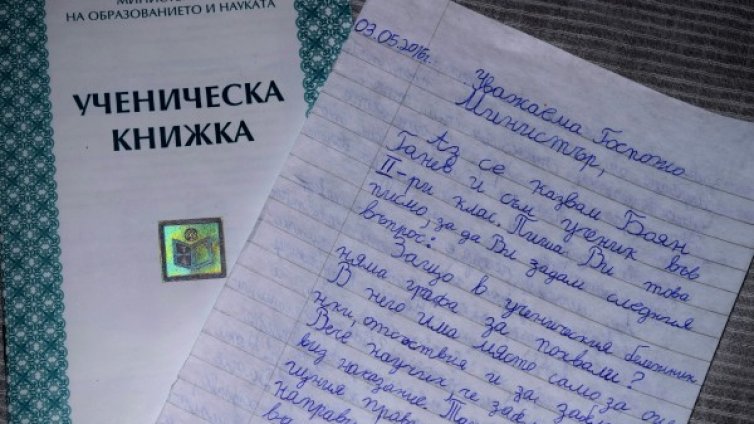 НА ОБРАЗОВАНИЕТО И НАУКАТА
УЧЕНИЧЕСКА
КНИЖКА
03.05.2016г.
Уважаема Госпожо
Министър,
Аз се казвам Боян
Ганев и съм ученик във
II-ри клас. Пиша Ви това
писмо, за да Ви задам следния
въпрос:
Защо в ученическия бележник
няма графа за похвали?
В него има място само за оце
нки, отсъствия и за забе
Вече научих, че
вид наказание.